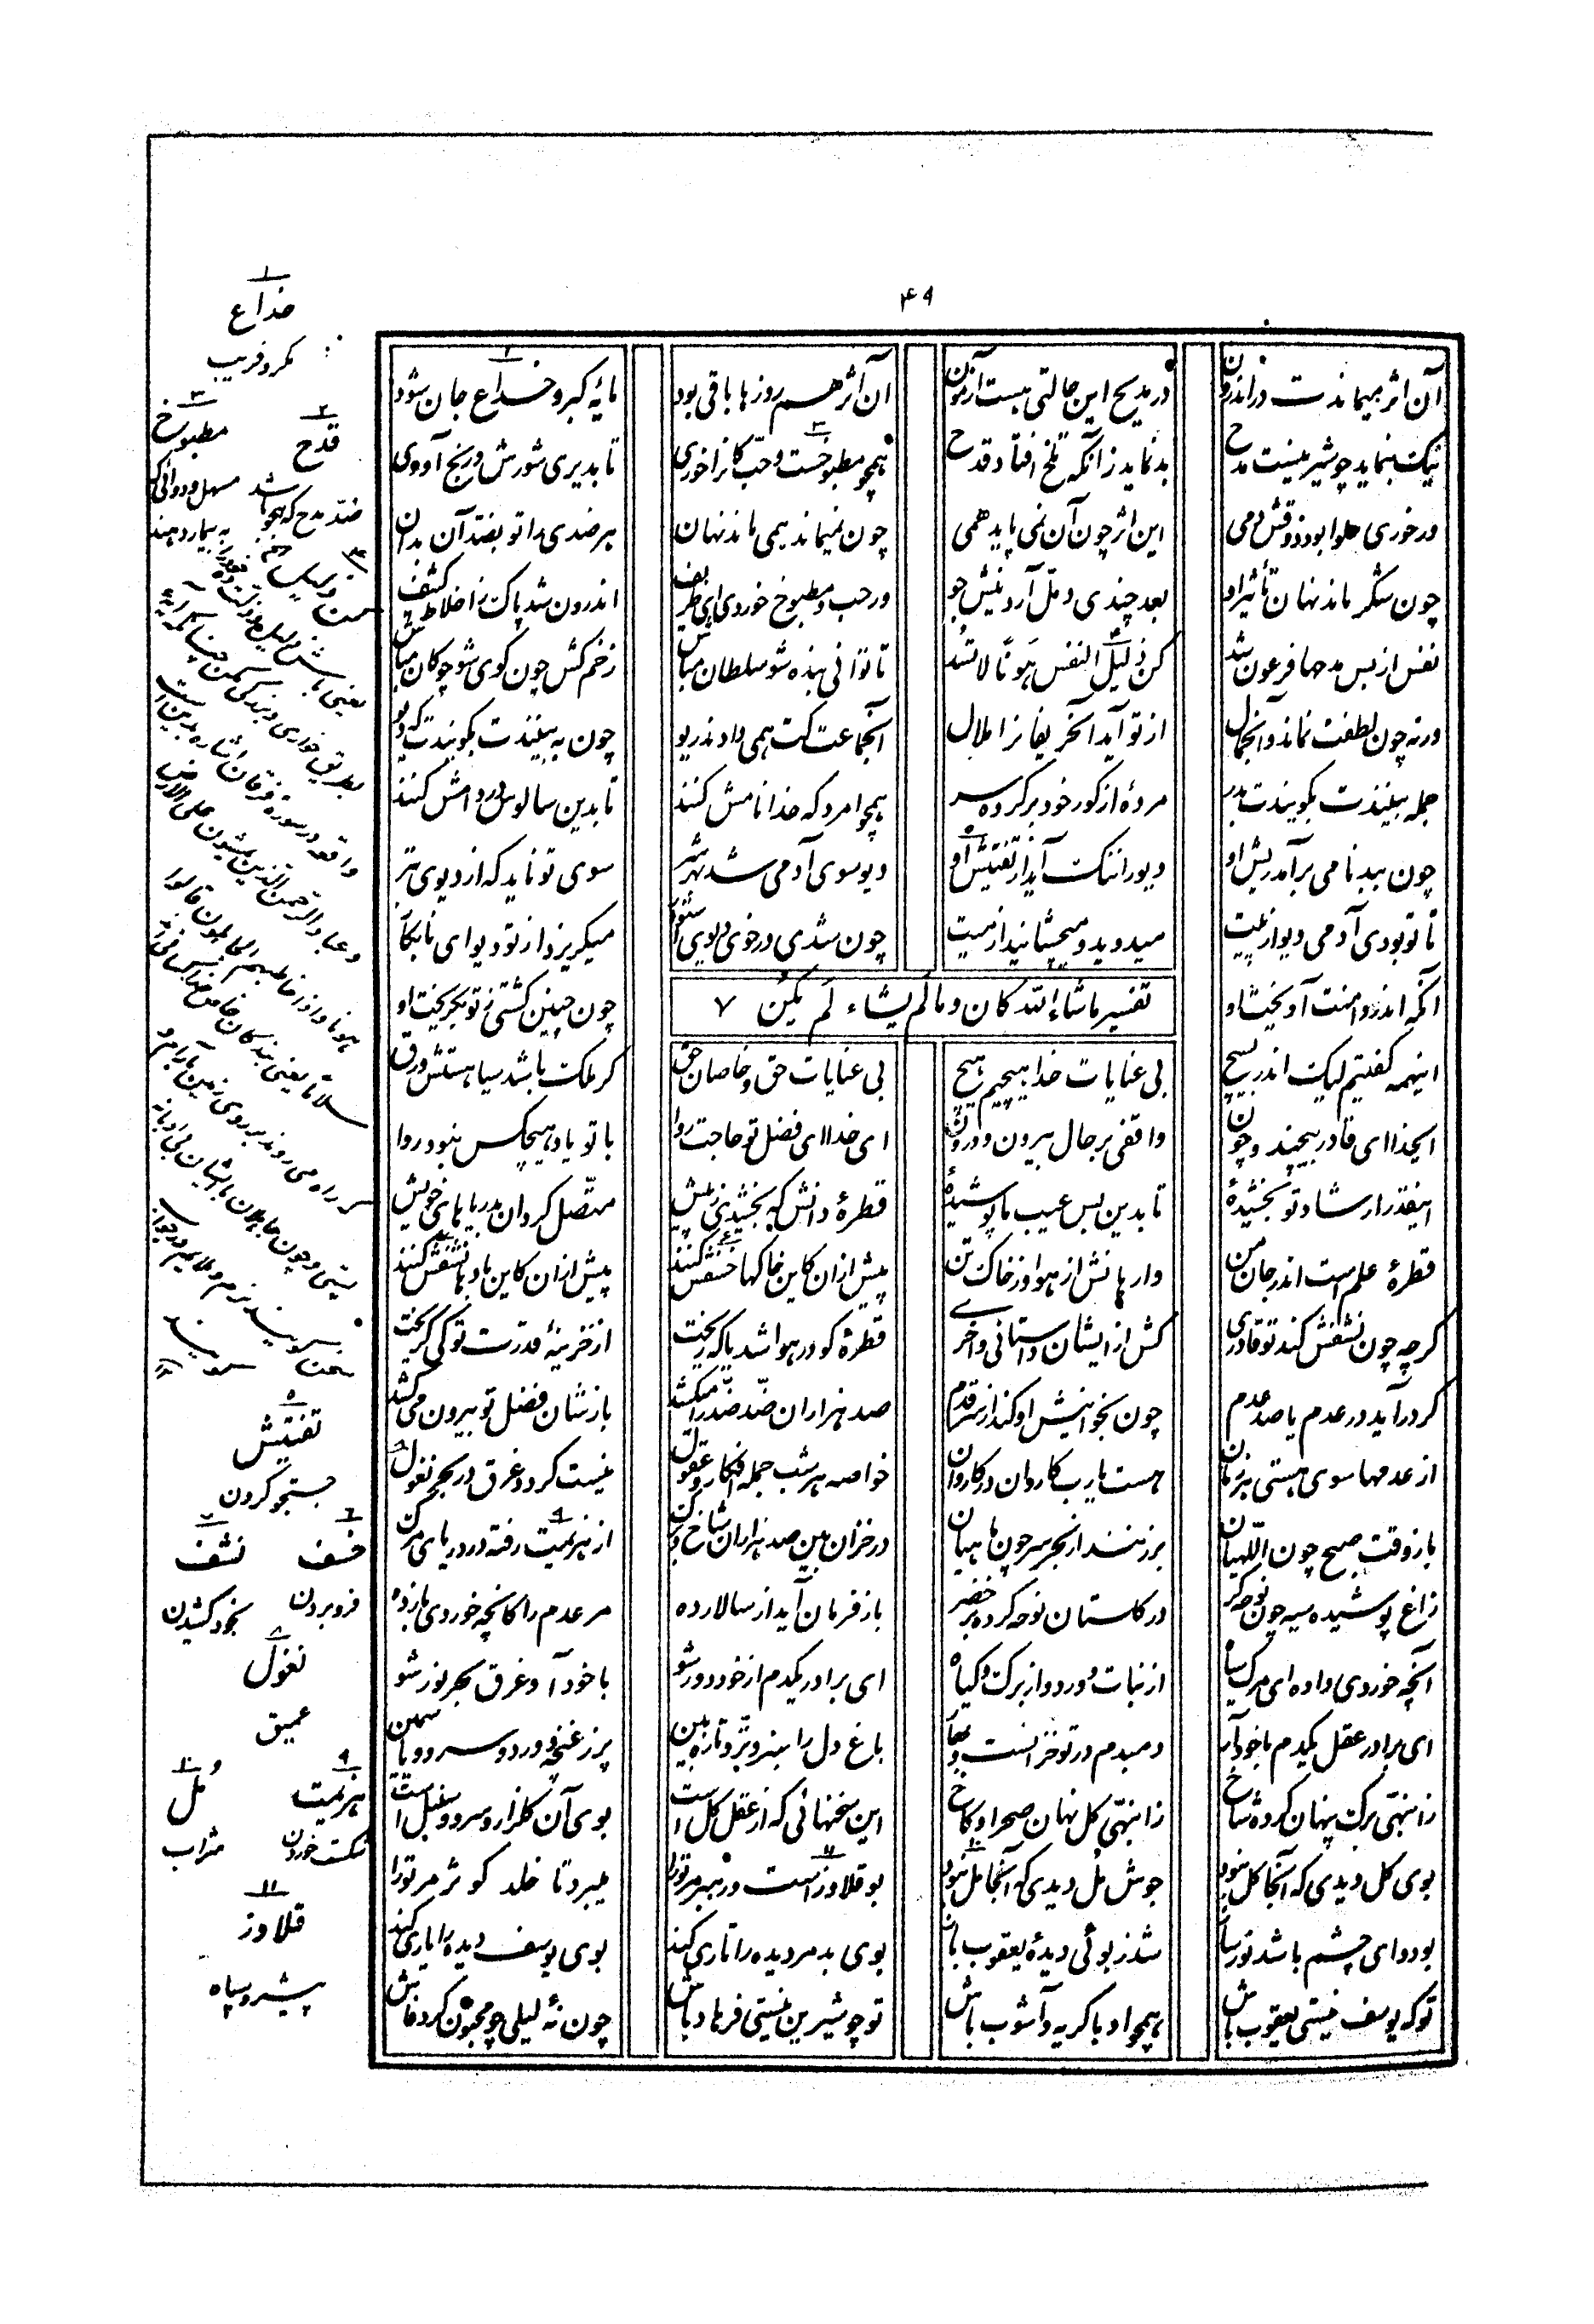 ۴۹
آن اثر میماندت در اندرون در مدیح این حالتی هست آزمون آن اثر هم روزها باقی بود مایه کبر و خداع جان شود
نیک بنماید چو شیرینست مدح بد نماید زانکه تلخ افتاد قدح همچو مطبوخست و حب کانرا خوری تا بدیری شورش و رنج آوری
ور خوری حلوا بود ذوقش دمی این اثر چون آن نمی پاید همی چون نمیماند همی ماند نهان هر ضدی را تو بضد آن بدان
چون شکر ماند نهان تأثیر او بعد چندی دمل آرد نیش جو ور حب و مطبوخ خوردی ای ظریف اندرون شد پاک ز اخلاط کثیف
نفس از بس مدحها فرعون شد کن ذلیل النفس هونا لا تسد تا توانی بنده شو سلطان مباش زخم کش چون گوی شو چوگان مباش
ورنه چون لطفت نماند و آنجمال از تو آید آنحریفانرا ملال آنجماعت کت همی دادند ریو چون به بینندت بگویندت که دیو
جمله بینندت بگویندت بدر مرده از گور خود بر کرده سر همچو امرد که خدا نامش کنند تا بدین سالوس در دامش کنند
چون ببدنامی برآمد ریش او دیو را ننگ آید از تفتیش او دیو سوی آدمی شد بهر شر سوی تو ناید که از دیوی بتر
تا تو بودی آدمی دیو از پیت میدوید و میچشانید از میت چون شدی در خوی دیوی استوار میگریزد از تو دیو ای نابکار
آنکه اندر دامنت آویخت او چون چنین گشتی ز تو بگریخت او
تفسیر ماشاء الله کان و ما لم یشاء لم یکن ۷
اینهمه گفتیم لیک اندر بسیج بی عنایات خدا هیچیم هیچ بی عنایات حق و خاصان حق گر ملک باشد سیاهستش ورق
ایخدا ای قادر بیچند و چون واقفی بر حال بیرون و درون ای خدا ای فضل تو حاجت روا با تو یاد هیچکس نبود روا
اینقدر ارشاد تو بخشیدهٔ تا بدین بس عیب ما پوشیدهٔ قطرهٔ دانش که بخشیدی ز پیش متصل گردان بدریاهای خویش
قطرهٔ علم است اندر جان من وارهانش از هوا وز خاک تن پیش ازان کاین خاکها خسفش کنند پیش ازان کاین بادها نشفش کنند
گرچه چون نشفش کند تو قادری کش از ایشان واستانی و اخری قطرهٔ کو در هوا شد یا که ریخت از خزینهٔ قدرت تو کی گریخت
گر درآید در عدم یا صد عدم چون بخوانیش او کند از سر قدم صد هزاران ضد ضد را میکشد بازشان فضل تو بیرون می کشد
از عدمها سوی هستی هر زمان هست یا رب کاروان در کاروان خاصه هر شب جمله افکار و عقول نیست گردد غرق در بحر نغول
باز وقت صبح چون اللهیان برزنند از بحر سر چون ماهیان در خزان بین صد هزاران شاخ و برگ از هزیمت رفته در دریای مرگ
زاغ پوشیده سیه چون نوحه گر در گلستان نوحه کرده بر خضر باز فرمان آید از سالار ده مر عدم را کانچه خوردی باز ده
آنچه خوردی واده ای مرگ سیاه از نبات و ورد و از برگ و گیاه ای برادر یکدم از خود دور شو با خود آ و غرق بحر نور شو
ای برادر عقل یکدم با خود آر دمبدم در تو خزانست و بهار باغ دل را سبز و تر و تازه بین پر ز غنچه و ورد و سرو و یاسمن
ز انبهی برگ پنهان گشته شاخ ز انبهی گل نهان صحرا و کاخ این سخنهائی که از عقل کل است بوی آن گلزار و سرو و سنبل است
بوی گل دیدی که آنجا گل نبود جوش مل دیدی که آنجا مل نبود بو قلاوز است و رهبر مر تورا میبرد تا خلد و کوثر مر تورا
بو دوای چشم باشد نورساز شد ز بوئی دیدهٔ یعقوب باز بوی بد مر دیده را تاری کند بوی یوسف دیده را یاری کند
تو که یوسف نیستی یعقوب باش همچو او با گریه و آشوب باش تو چو شیرین نیستی فرهاد باش چون نهٔ لیلی چو مجنون گرد فاش
۱
خداع
مکر و فریب
۲
قدح
ضد مدح که هجو باشد
۳
مطبوخ
مسهل و دوائی که
به بیمار دهند
۴
یعنی باش
بطریق خواری و بندگی
واقعه در سوره فرقان اشاره بدین است
و عباد الرحمن الذین یمشون علی الارض
هونا و اذا خاطبهم الجاهلون قالوا
سلاما یعنی بندگان خاص خدا
راه می روند بر روی زمین
و چون جاهلان با ایشان
۵
تفتیش
جستجو کردن
۶
خسف
فرو بردن
۷
نشف
بخود کشیدن
۸
نغول
عمیق
۹
هزیمت
شکست خوردن
۱۰
مل
شراب
۱۱
قلاوز
پیشرو سپاه